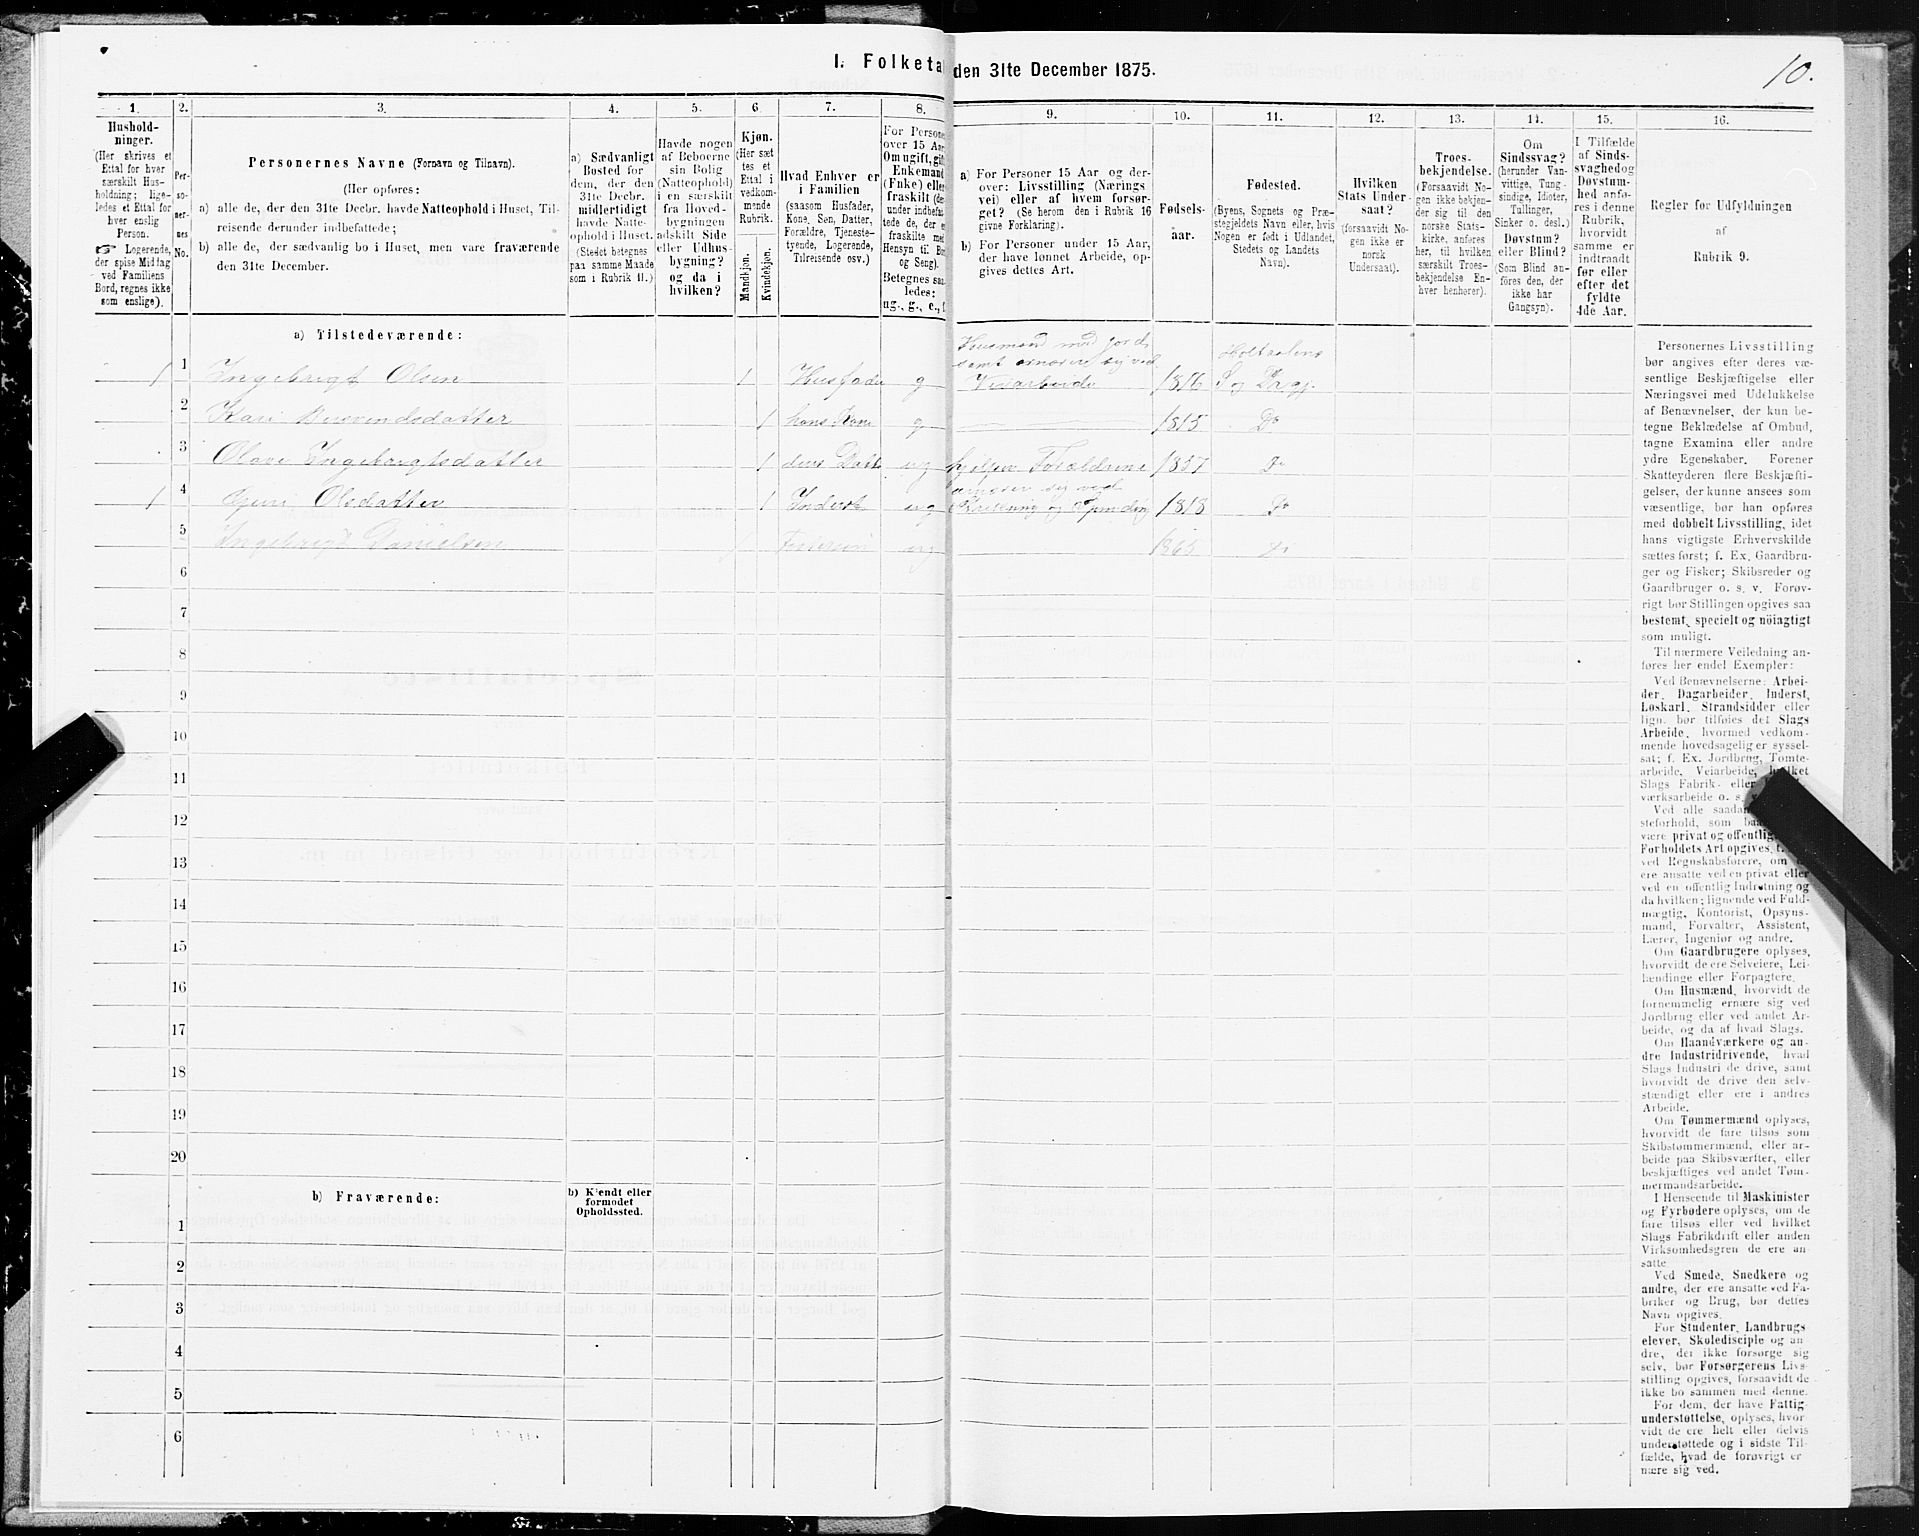 I. Folketal den 31te December 1875.
10.
1. 2. 3. 4. 5. 6. 7. 8. 9. 10. 11. 12. 13. 14. 15. 16.
Hushold-
ninger.
(Her skrives et
Ettal for hver
særskilt Hus-
holdning; lige-
ledes et Ettal for
hver enslig
Person.
☞ Logerende,
der spise Middag
ved Familiens
Bord, regnes ikke
som enslige).
Per-
so-
ner-
nes
No.
Personernes Navne (Fornavn og Tilnavn).
(Her opføres:
a) alle de, der den 31te Decbr. havde Natteophold i Huset, Til-
reisende derunder indbefattede;
b) alle de, der sædvanlig bo i Huset, men vare fraværende
den 31te December.
a) Sædvanligt
Bosted for
dem, der den
31te Decbr.
midlertidigt
havde Natte-
ophold i Huset.
(Stedet betegnes
paa samme Maade
som i Rubrik 11.)
Havde nogen
af Beboerne
sin Bolig
(Natteophold)
i en særskilt
fra Hoved-
bygningen
adskilt Side
eller Udhus-
bygning?
og da i
hvilken?
Kjøn.
(Her sæt
tes et
Ettal i
vedkom-
mende
Rubrik.
Mandkjøn.
Kvindekjøn.
Hvad Enhver er
i Familien
(saasom Husfader,
Kone, Søn, Datter,
Forældre, Tjeneste-
tyende, Logerende,
Tilreisende osv.)
For Persone
over 15 Aar
Om ugift, gif
Enkemand
(Enke) elle
fraskilt (de
under indbefa
tede de, der e
fraskilte med
Hensyn til Bo
og Seng).
Betegnes saa
ledes:
ug., g., e.,
a) For Personer 15 Aar og der-
over: Livsstilling (Nærings
vei) eller af hvem forsør-
get? (Se herom den i Rubrik 16
givne Forklaring).
b) For Personer under 15 Aar,
der have lønnet Arbeide, op-
gives dettes Art.
Fødsels-
aar.
Fødested.
(Byens, Sognets og Præ-
stegjeldets Navn eller, hvis
Nogen er født i Udlandet,
Stedets og Landets
Navn).
Hvilken
Stats Under-
saat?
(forsaavidt No-
gen ikke er
norsk
Undersaat).
Troes-
bekjendelse.
(Forsaavidt No-
gen ikke bekjen-
der sig til den
norske Stats-
kirke, anføres
her, til hvilken
særskilt Troes-
bekjendelse En-
hver henhører).
Om
Sindssvag?
(herunder Van-
vittige, Tung-
sindige, Idioter,
Tullinger,
Sinker o. desl.)
Døvstum?
eller Blind?
(Som Blind an-
føres den, der
ikke har
Gangsyn).
I Tilfælde
af Sinds-
svaghed og
Døvstum-
hed anfø-
res i denne
Rubrik,
hvorvidt
samme er
indtraadt
før eller
efter det
fyldte
4de Aar.
Regler før Udfyldningen
af
Rubrik 9.
a) Tilstedeværende:
Husmand med jord
samt ernærer sig ved
Holtaalens
1 1 Ingebrigt Olsen 1 Husfader g Veiarbeide 1816 S og Prgj.
2 Kari Bersvendsdatter 1 hans Kone g 1815 Do
3 Olave Ingebrigtsdatter 1 deres Datt ug hjelper Forældrene 1857 Do
ernærer sig ved
1 4 Guri Olsdatter 1 Inderst ug Strikning og Spinding 1818 Do
5 Ingebrigt Danielsen 1 ug 1865 Do
6
7
8
9
10
11
12
13
14
15
16
17
18
19
20
b) Fraværende:
b) Kjendt eller
formodet
Opholdssted.
1
2
3
4
5
6
Personernes Livsstilling
bør angives efter deres væ-
sentlige Beskjæftigelse eller
Næringsvei med Udelukkelse
af Benævnelser, der kun be-
tegne Beklædelse af Ombud,
tagne Examina eller andre
ydre Egenskaber. Forener
Skatteyderen flere Beskjæfti-
gelser, der kunne ansees som
væsentlige, bør han opføres
med dobbelt Livsstilling, idet
hans vigtigste Erhvervskilde
sættes først; f. Ex. Gaardbru-
ger og Fisker; Skibsreder og
Gaardbruger o. s. v. Forøv-
rigt bør Stillingen opgives saa
bestemt, specielt og nöiagtigt
som muligt.
Til nærmere Veiledning an-
føres her endel Exempler:
Ved Benævnelserne: Arbei-
der, Dagarbeider, Inderst,
Løskarl, Strandsidder eller
lign. bør tilføies det Slags
Arbeide, hvormed vedkom-
mende hovedsagelig er syssel-
sat; f. Ex. Jordbrug, Tomte-
arbeide, Veiarbeide, hvilket
Slags Fabrik- eller
værksarbeide o. s. v.
Ved alle saadan
steforhold, som
være privat og offentlig,
Forholdets Art opgives, f.
ved Regnskabsførere, om
ere ansatte ved en privat eller
ved en offentlig Indretning og
da hvilken; lignende ved Fuld-
mægtig, Kontorist, Opsyns-
mand, Forvalter, Assistent,
Lærer, Ingeniør og andre.
Om Gaardbrugere oplyses,
hvorvidt de ere Selveiere, Lei-
lændinge eller Forpagtere.
Om Husmænd, hvorvidt de
fornemmelig ernære sig ved
Jordbrug eller ved andet Ar-
beide, og da af hvad Slags.
Om Haandværkere og an-
dre Industridrivende, hvad
Slags Industri de drive, samt
hvorvidt de drive den selv-
stændigt eller ere i andres
Arbeide.
Om Tømmermænd oplyses,
hvorvidt de fare tilsøs som
Skibstømmermænd, eller ar-
beide paa Skibsværfter, eller
beskjæftiges ved andet Tøm-
mermandsarbeide.
I Henseende til Maskinister
og Fyrbødere oplyses, om de
fare tilsøs eller ved hvilket
Slags Fabrikdrift eller anden
Virksomhedsgren de ere an-
satte
Ved Smede, Snedkere og
andre, der ere ansatte ved Fa-
briker og Brug, bør dettes
Navn opgives.
For Studenter, Landbrugs
elever, Skoledisciple og an-
dre, der ikke forsørge sig
selv, bør Forsørgerens Livs-
stilling opgives, forsaavidt de
ikke bo sammen med denne.
For dem, der have Fattig
understøttelse, oplyses, hvor
vidt de ere helt eller delvis
understøttede og i sidste Til-
fælde, hvad de forøvrigt er
nære sig ved.